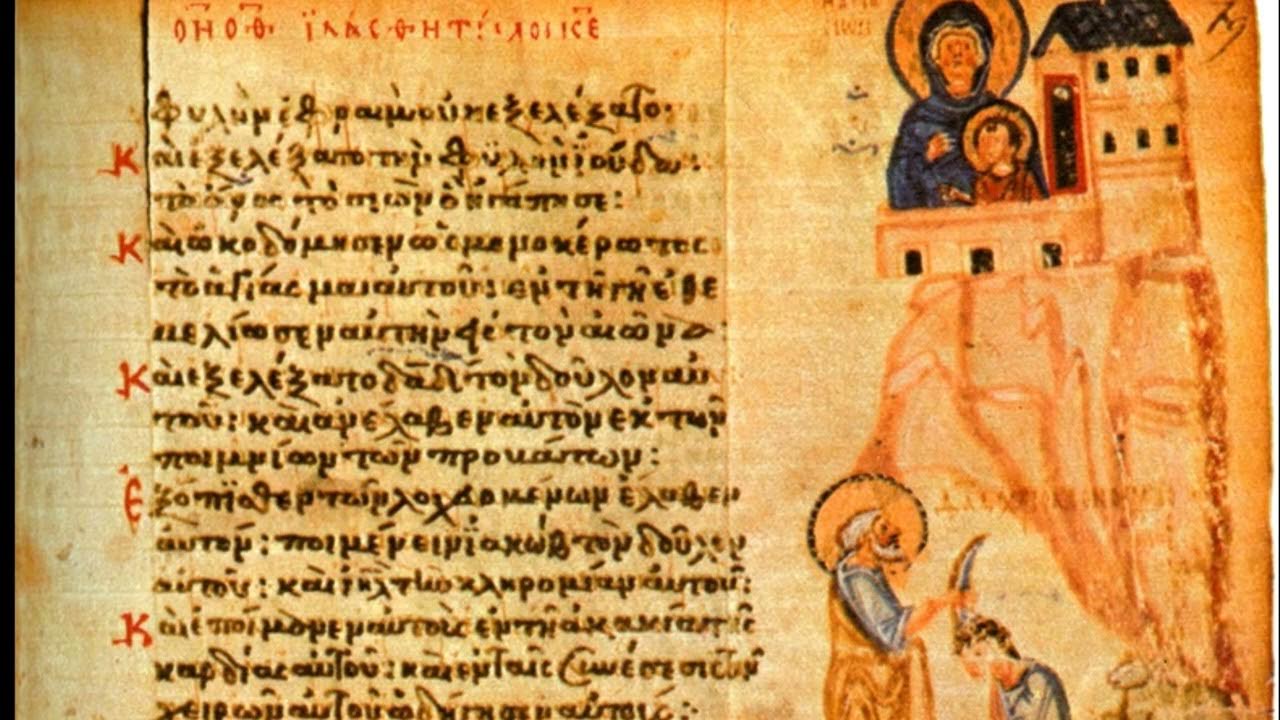 ἱλάσθητι
φυλὴν ἐφραὶμ οὐκ ἐξελέξατο:
Καὶ ἐξελέξατο τὴν φυλὴν ἰούδα:
τὸ ὄρος τὸ σιὼν ὃ ἠγάπησε:
Καὶ ὠκοδόμησεν ὡς μονοκέρωτος
τὸ ἁγίασμα αὐτοῦ: ἐν τῇ γῇ ἐθε
μελίωσεν αὐτὴν εἰς τὸν αἰῶνα:
Καὶ ἐξελέξατο δαδ τὸν δοῦλον αὐ
τοῦ: καὶ ἀνέλαβεν αὐτὸν ἐκ τῶν
ποιμνίων τῶν προβάτων:
Ἐξόπισθεν τῶν λοχευομένων ἔλαβεν
αὐτόν: ποιμένειν ἰακὼβ τὸν δοῦλον
αὐτοῦ: καὶ ιηλ τὴν κληρονομίαν αὐτοῦ:
Καὶ ἐποίμανεν αὐτοὺς ἐν τῇ ἀκακία τῆς
καρδίας αὐτοῦ: καὶ ἐν ταῖς συνέσεσι τῶν
χειρῶν αὐτοῦ ὡδήγησεν αὐτούς: